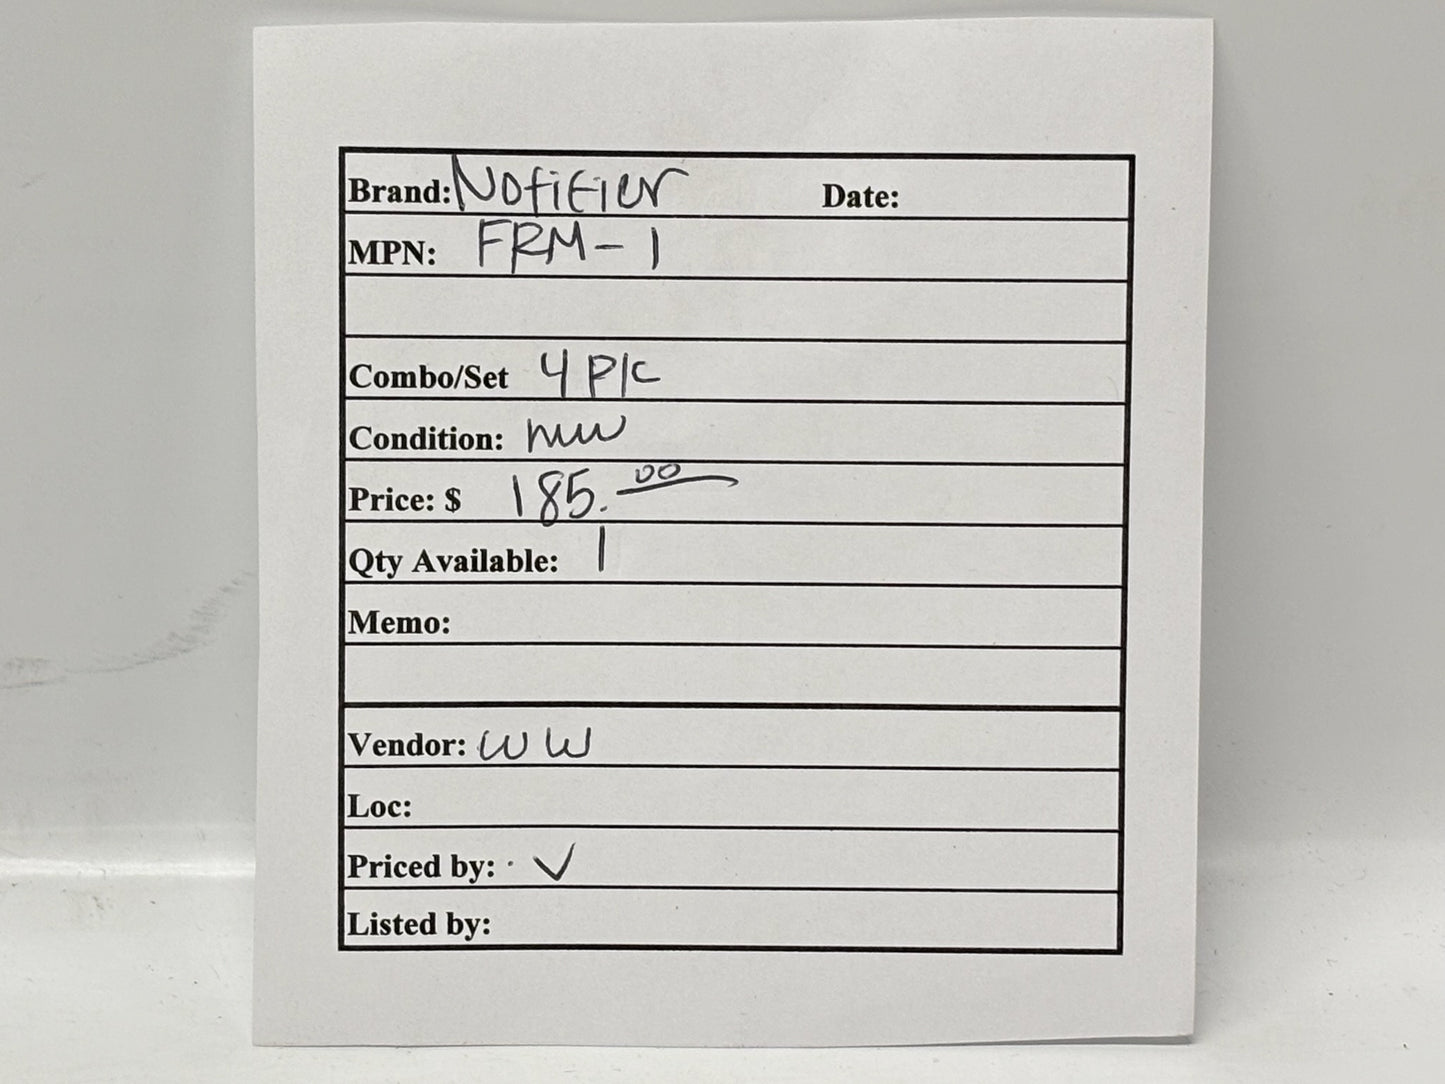 Brand: Notifier Date:
MPN: FRM-1
Combo/Set 4 P/C
Condition: new
Price: $ 185.00
Qty Available: 1
Memo:
Vendor: WW
Loc:
Priced by: ✓
Listed by: